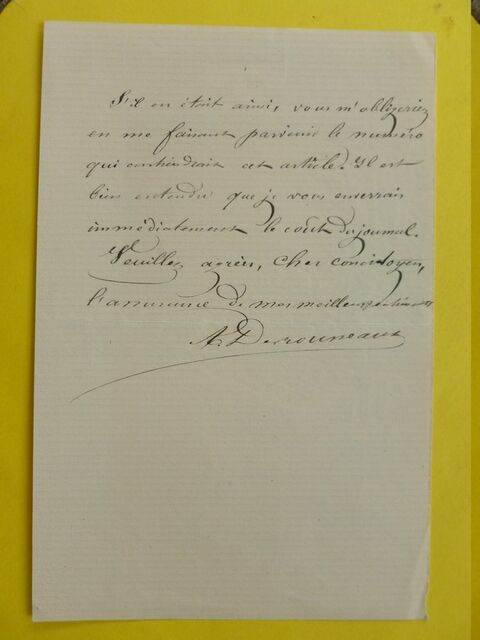 S'il en était ainsi, vous m'obligeriez
en me faisant parvenir le numéro
qui contiendrait cet article. Il est
bien entendu que je vous enverrais
immédiatement le coût du journal.
Veuillez agréer, cher concitoyen,
l'assurance de mes meilleurs sentiments
A.